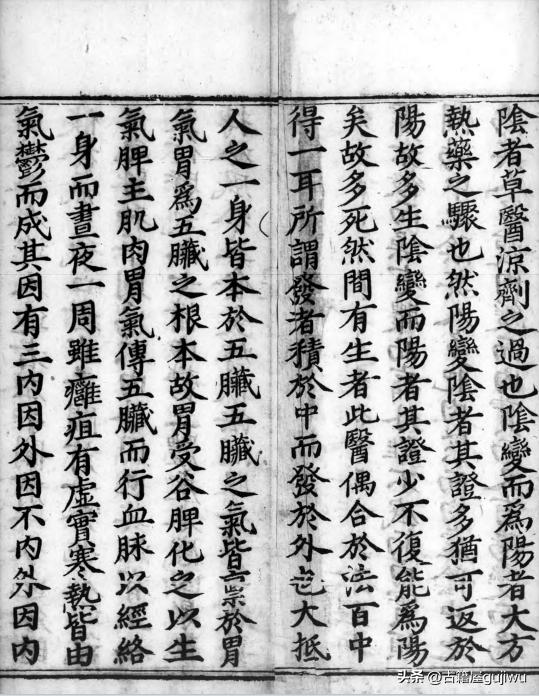 陰者草醫涼劑之過也陰變而爲陽者大方
熱藥之驟也然陽變陰者其證多猶可返於
陽故多生陰變而陽者其證少不復能爲陽
矣故多死然間有生者此醫偶合於法百中
得一耳所謂發者積於中而發於外也大抵
人之一身皆本於五臟五臟之氣皆稟於胃
氣胃爲五臟之根本故胃受谷脾化之以生
氣脾主肌肉胃氣傳五臟而行血脉以經絡
一身而晝夜一周雖癰疽有虛實寒熱皆由
氣鬱而成其因有三内因外因不内外因内
头条@古籍屋gujiwu